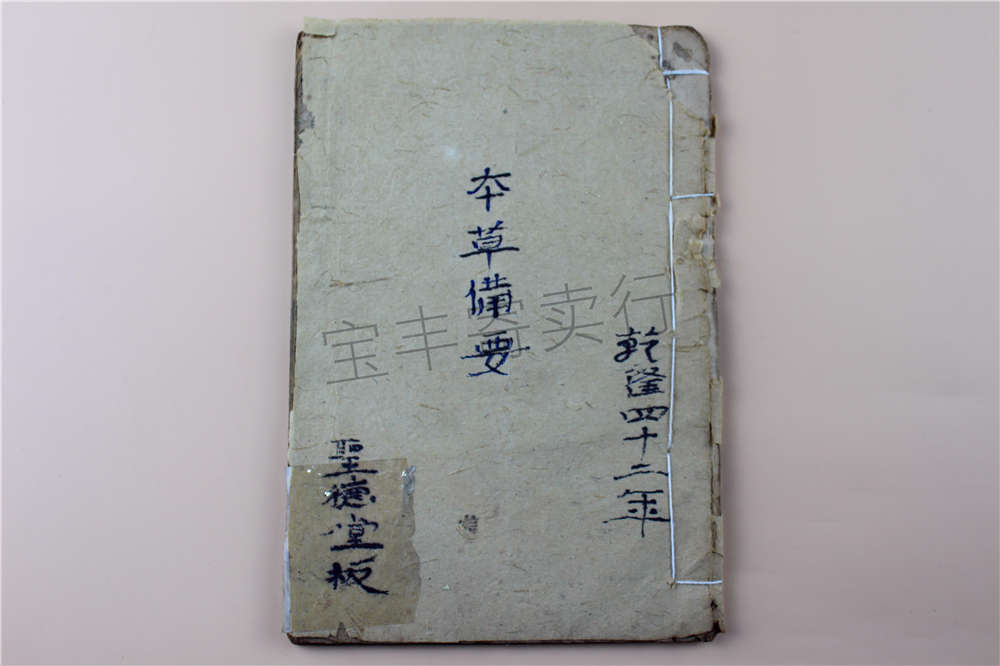 乾隆四十二年
本草備要
聖德堂板
宝丰寄卖行